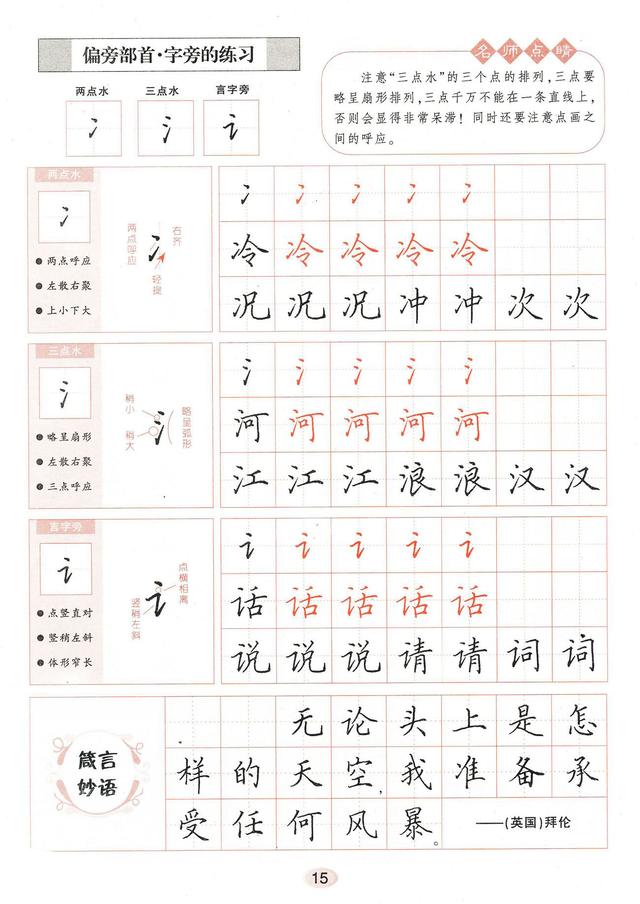 偏旁部首·字旁的练习
名师点睛
注意“三点水”的三个点的排列,三点要
略呈扇形排列,三点千万不能在一条直线上,
否则会显得非常呆滞!同时还要注意点画之
间的呼应。
两点水 三点水 言字旁
冫 氵 讠
两点水
冫
两点呼应
左散右聚
上小下大
两点呼应
右齐
轻提
冫 冫 冫 冫 冫
冷 冷 冷 冷 冷
况 况 况 冲 冲 次 次
三点水
氵
略呈扇形
左散右聚
三点呼应
稍小
稍大
略呈弧形
氵 氵 氵 氵 氵
河 河 河 河 河
江 江 江 浪 浪 汉 汉
言字旁
讠
点竖直对
竖稍左斜
体形窄长
点横相离
竖稍左斜
讠 讠 讠 讠 讠
话 话 话 话 话
说 说 说 请 请 词 词
箴言
妙语
无论头上是怎
样的天空,我准备承
受任何风暴。
——(英国)拜伦
15